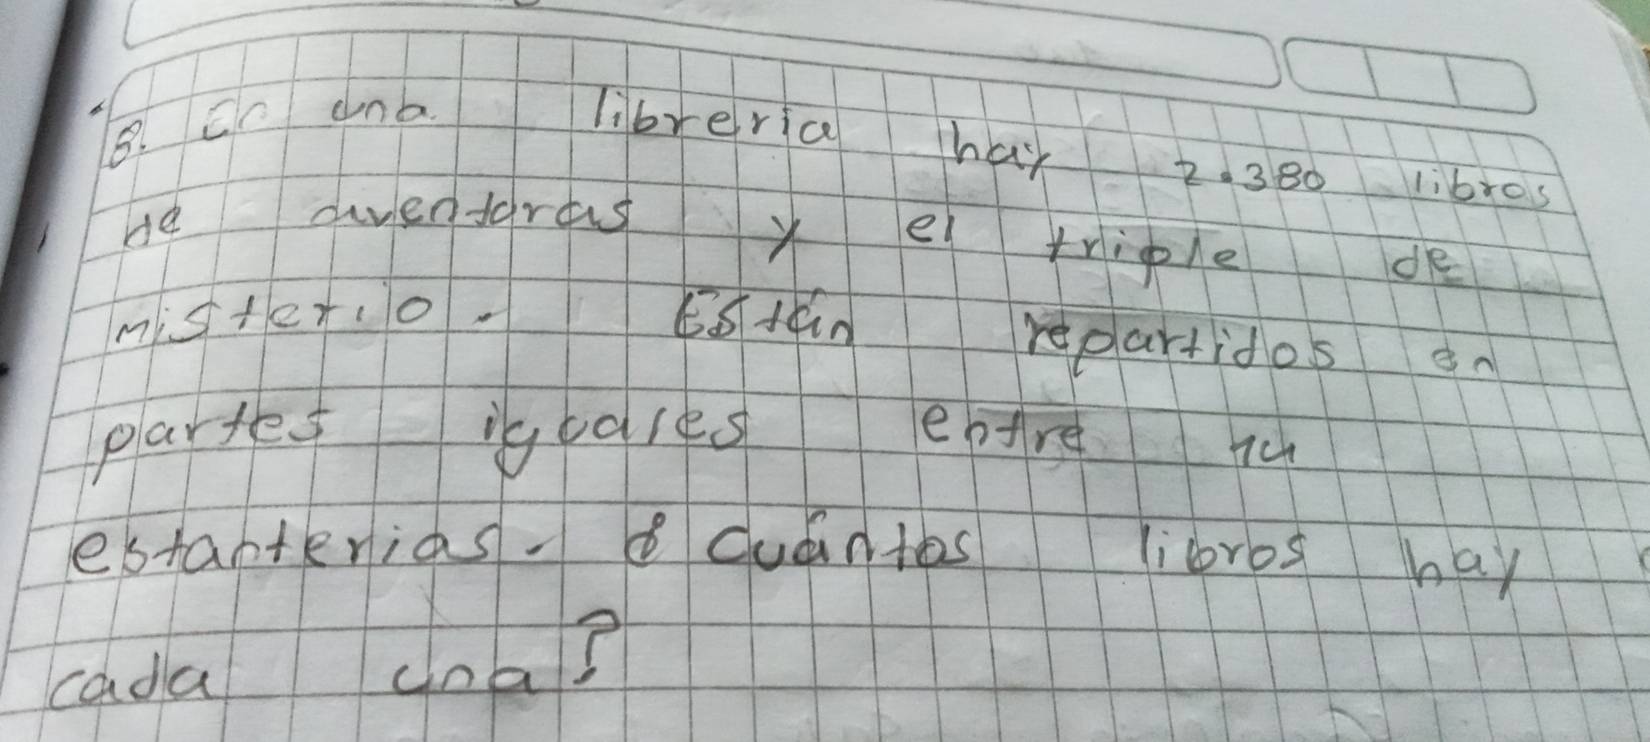 8. En una libreria hay 2.380 libros
de aventuras y el triple de
misterio. Están repartidos en
partes iguales entre 14
estanterias. ¿ cuántos libros hay
cada una?